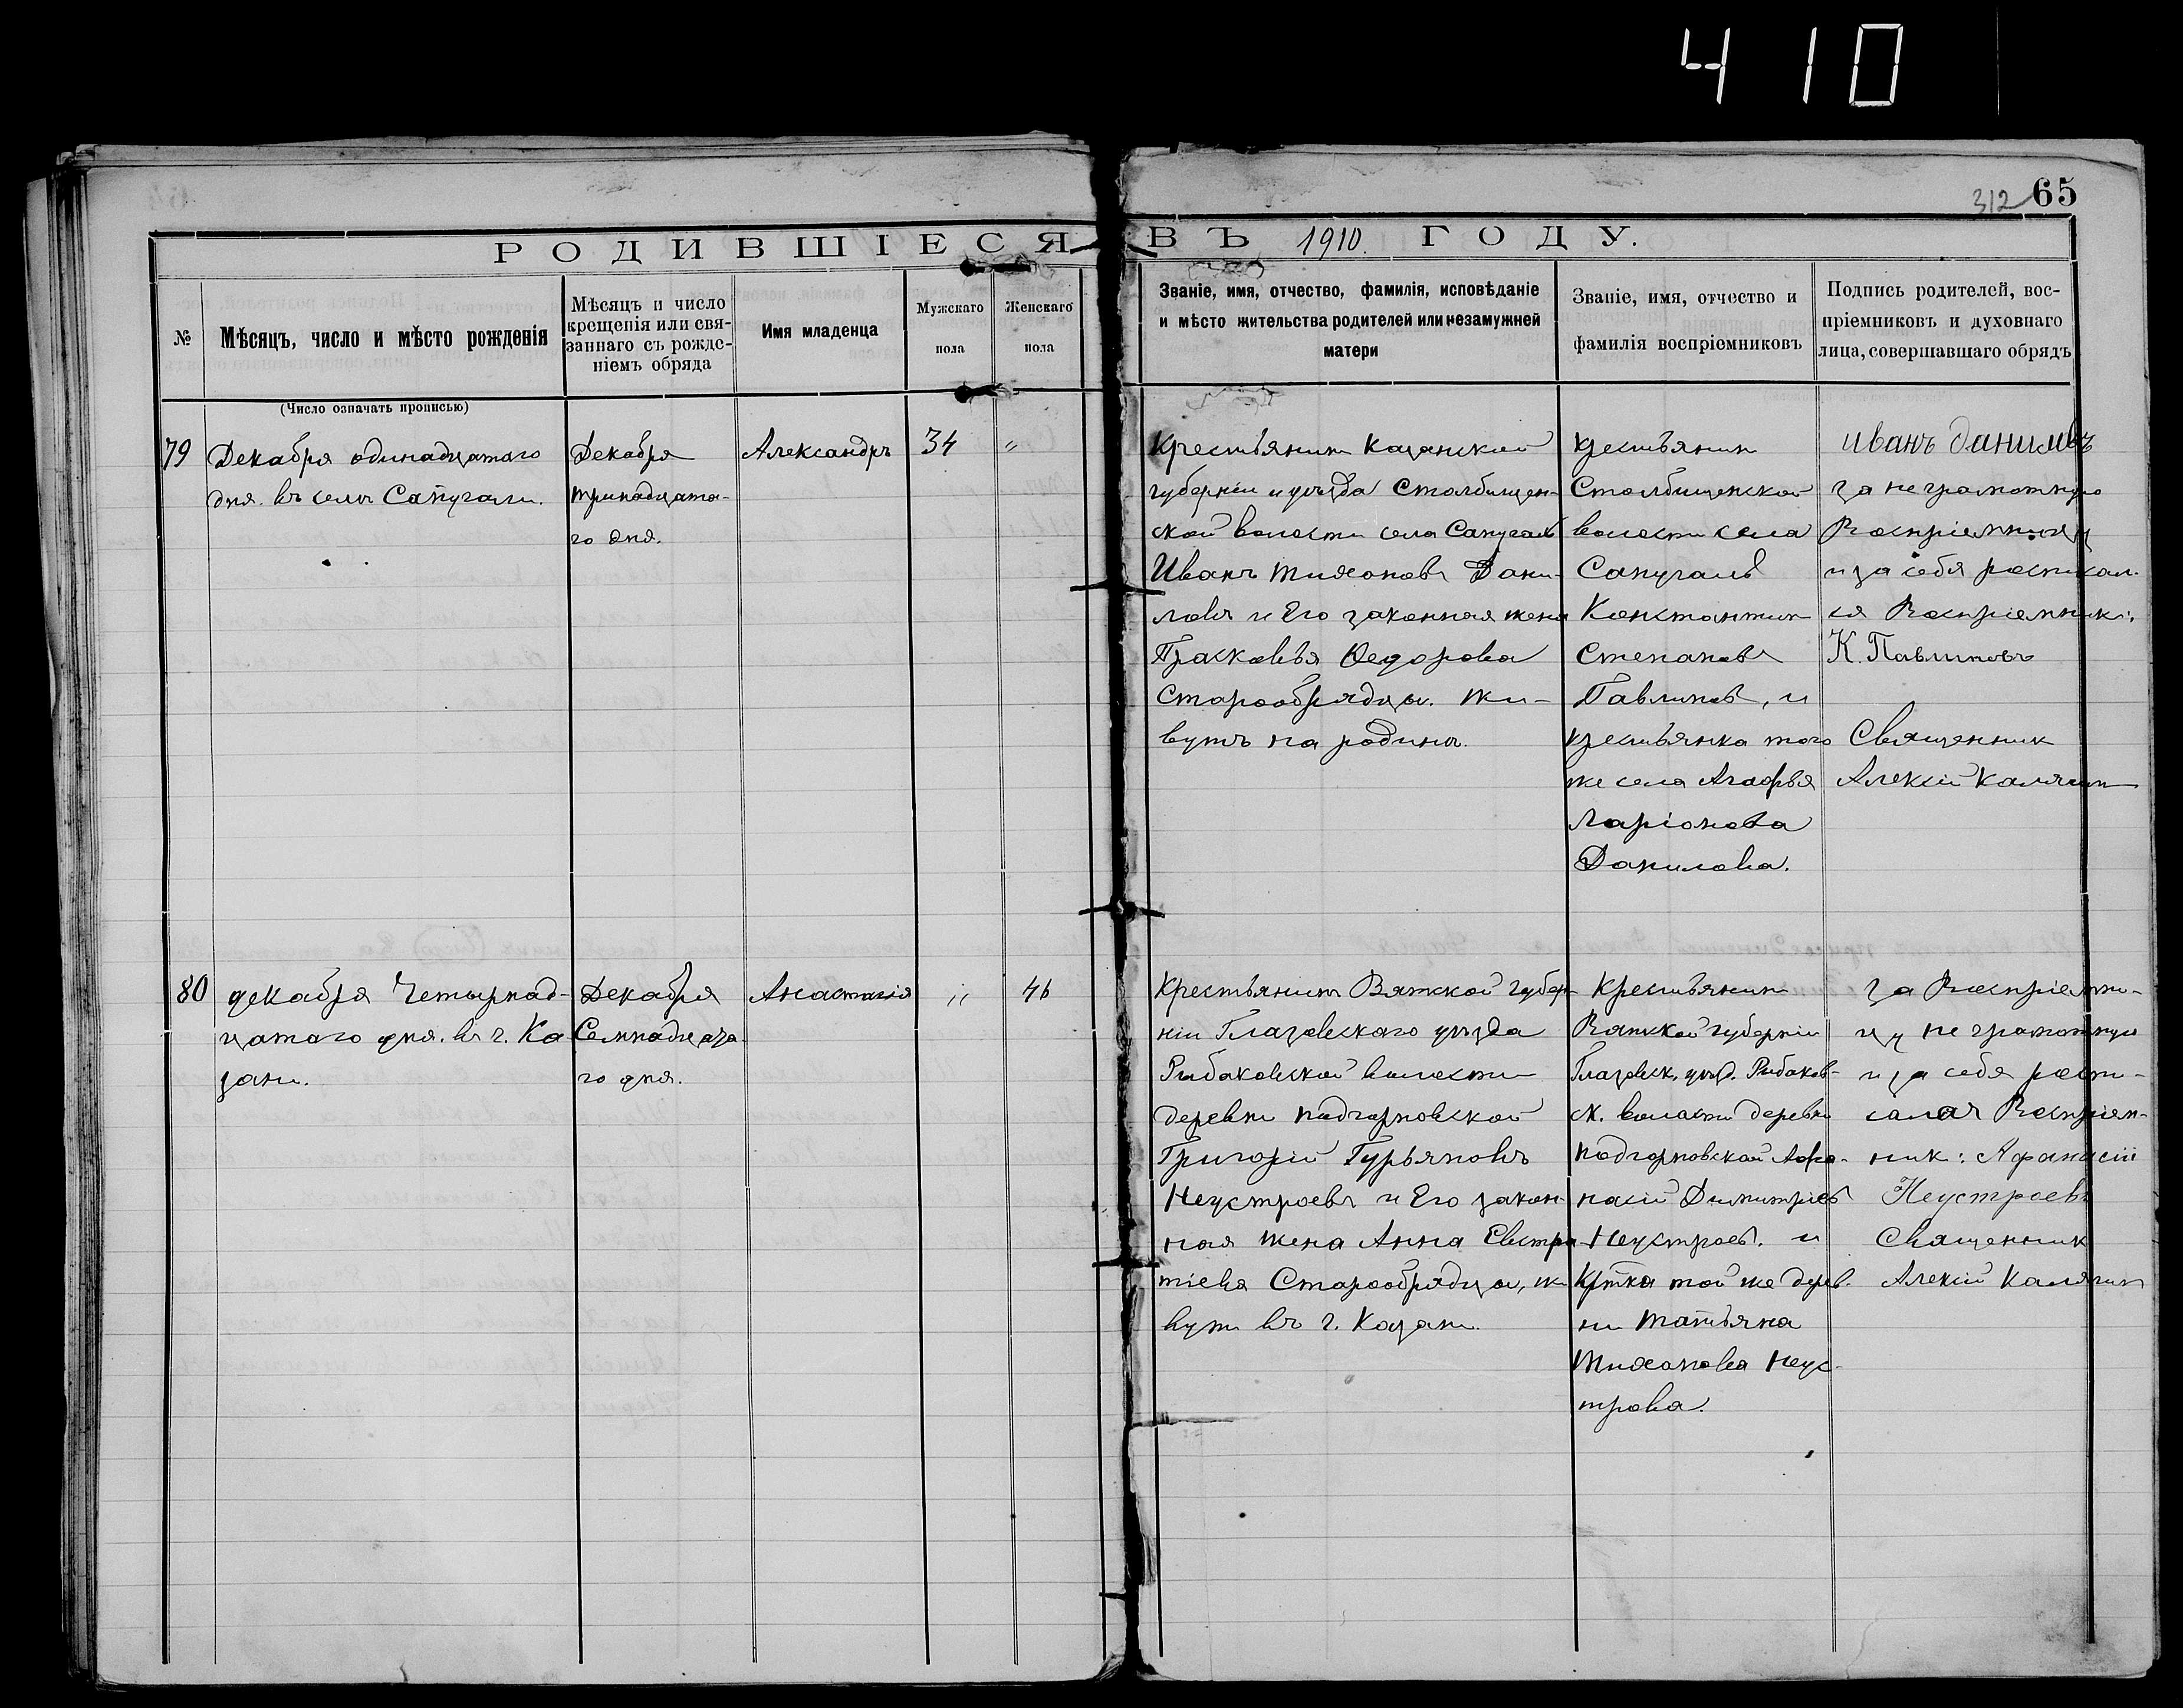 410
312 65
РОДИВШІЕСЯ ВЪ 1910. ГОДУ.
№
Мѣсяцъ, число и мѣсто рожденія
Мѣсяцъ и число
крещенія или свя-
заннаго съ рожде-
ніемъ обряда
Имя младенца
Мужскаго
пола
Женскаго
пола
Званіе, имя, отчество, фамилія, исповѣданіе
и мѣсто жительства родителей или незамужней
матери
Званіе, имя, отчество и
фамилія воспріемниковъ
Подпись родителей, вос-
пріемниковъ и духовнаго
лица, совершавшаго обрядъ
(Число означать прописью)
79
Декабря одинадцатаго
дня. въ селѣ Сапугали.
Декабря
тринадцата-
го дня.
Александръ
34
"
Крестьянинъ Казанской
губерніи и уѣзда Столбищен-
ской волости села Сапугалъ
Иванъ Тихоновъ Дани-
ловъ и Его законная жена
Прасковья Ѳедорова
Старообрядцы. Жи-
вутъ на родинѣ.
крестьянинъ
Столбищенской
волости села
Сапугалъ
Константинъ
Степановъ
Павлиновъ, и
крестьянка того
же села Агафья
Ларіонова
Данилова.
иванъ даниловъ
за неграмотную
Воспріемницу
и за себя росписал-
ся Воспріемник:
К. Павлиновъ
Священник
Алексій Калягин
80
декабря Четырнад-
цатаго дня. въ г. Ка
зани.
Декабря
Семнадцата-
го дня.
Анастасія
"
46
Крестьянинъ Вятской губер-
ніи Глазовскаго уѣзда
Рыбаковской волости
деревни подгорновской
Григорій Гурьяновъ
Неустроевъ и Его закон-
ная жена Анна Евстра-
тіева Старообрядцы, жи
вутъ въ г. Казани.
Крестьянин
Вятской губерніи
Глазовск. уѣзд. Рыбаков-
ск. волости деревни
подгорновской Афа-
насій Димитріев
Неустроев. и
Кртка той же дерев-
ни Татьяна
Тихонова Неус-
трова.
За Воспріемни-
цу неграмотную
и за себя роспи-
сался Воспріем-
ник: Афанасій
Неустроевъ
Священник
Алексій Калягин